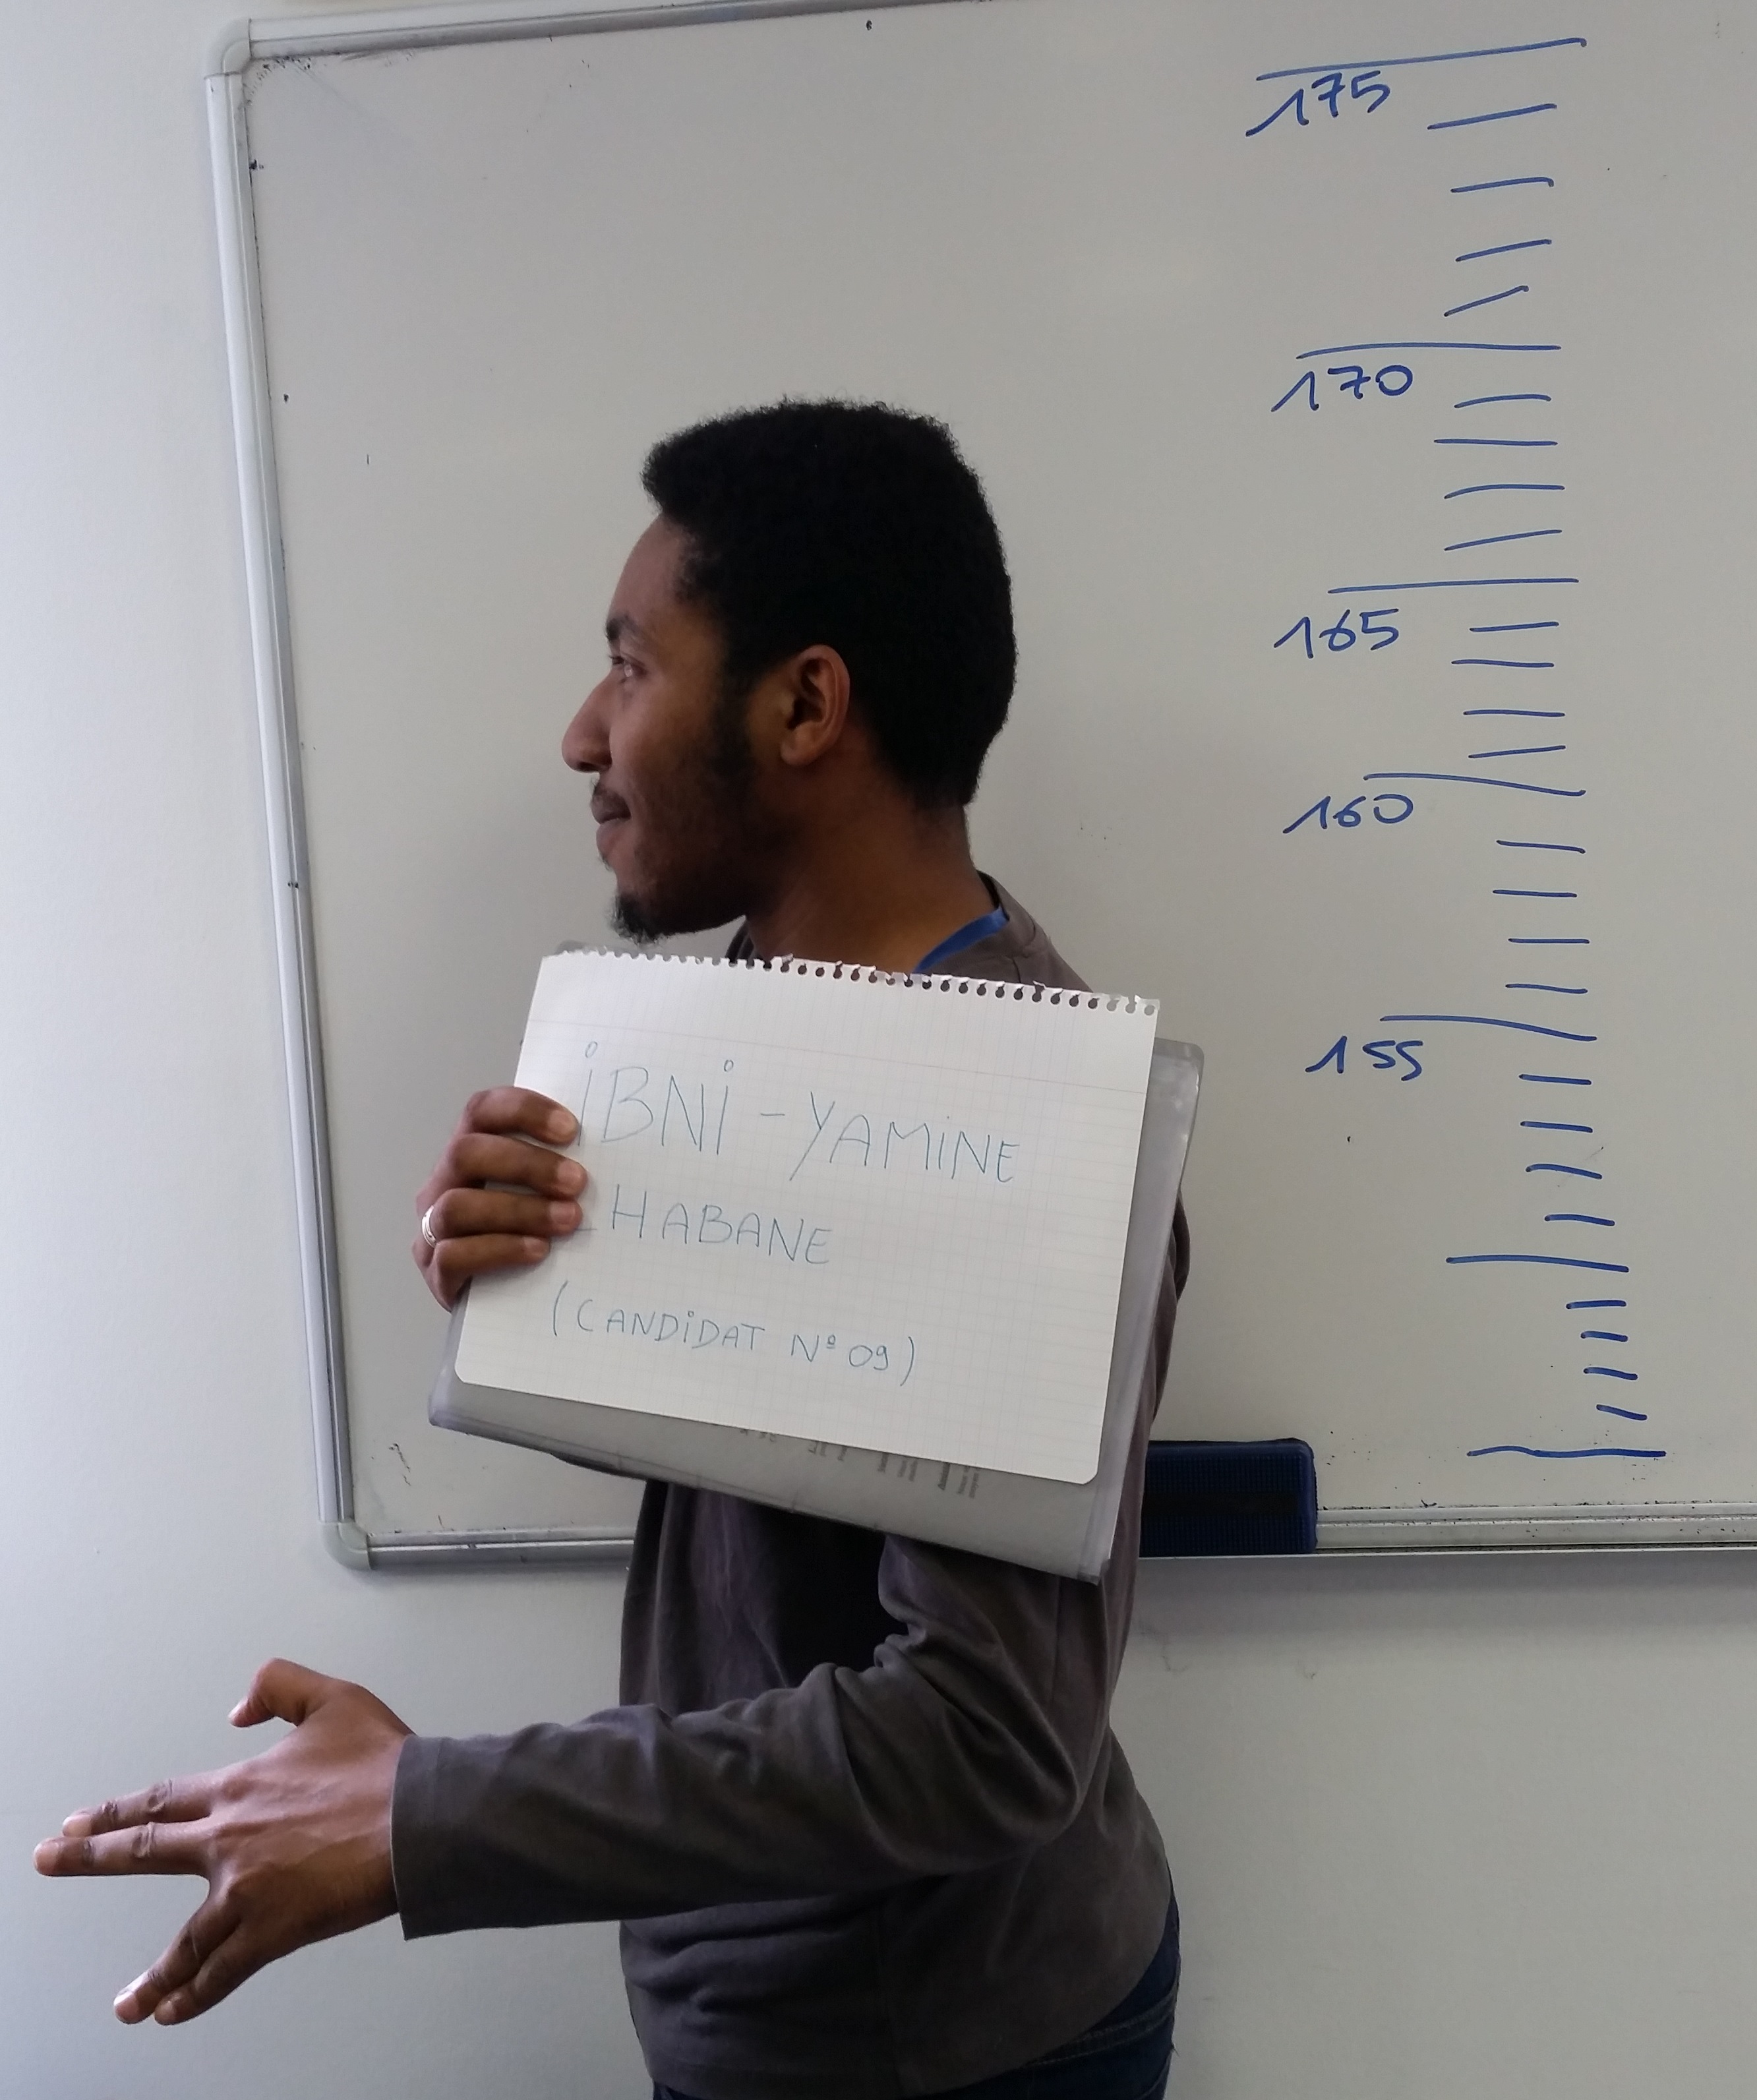 175
170
165
160
155
iBNi-YAMiNE
HABANE
(CANDiDAT Nº 09)